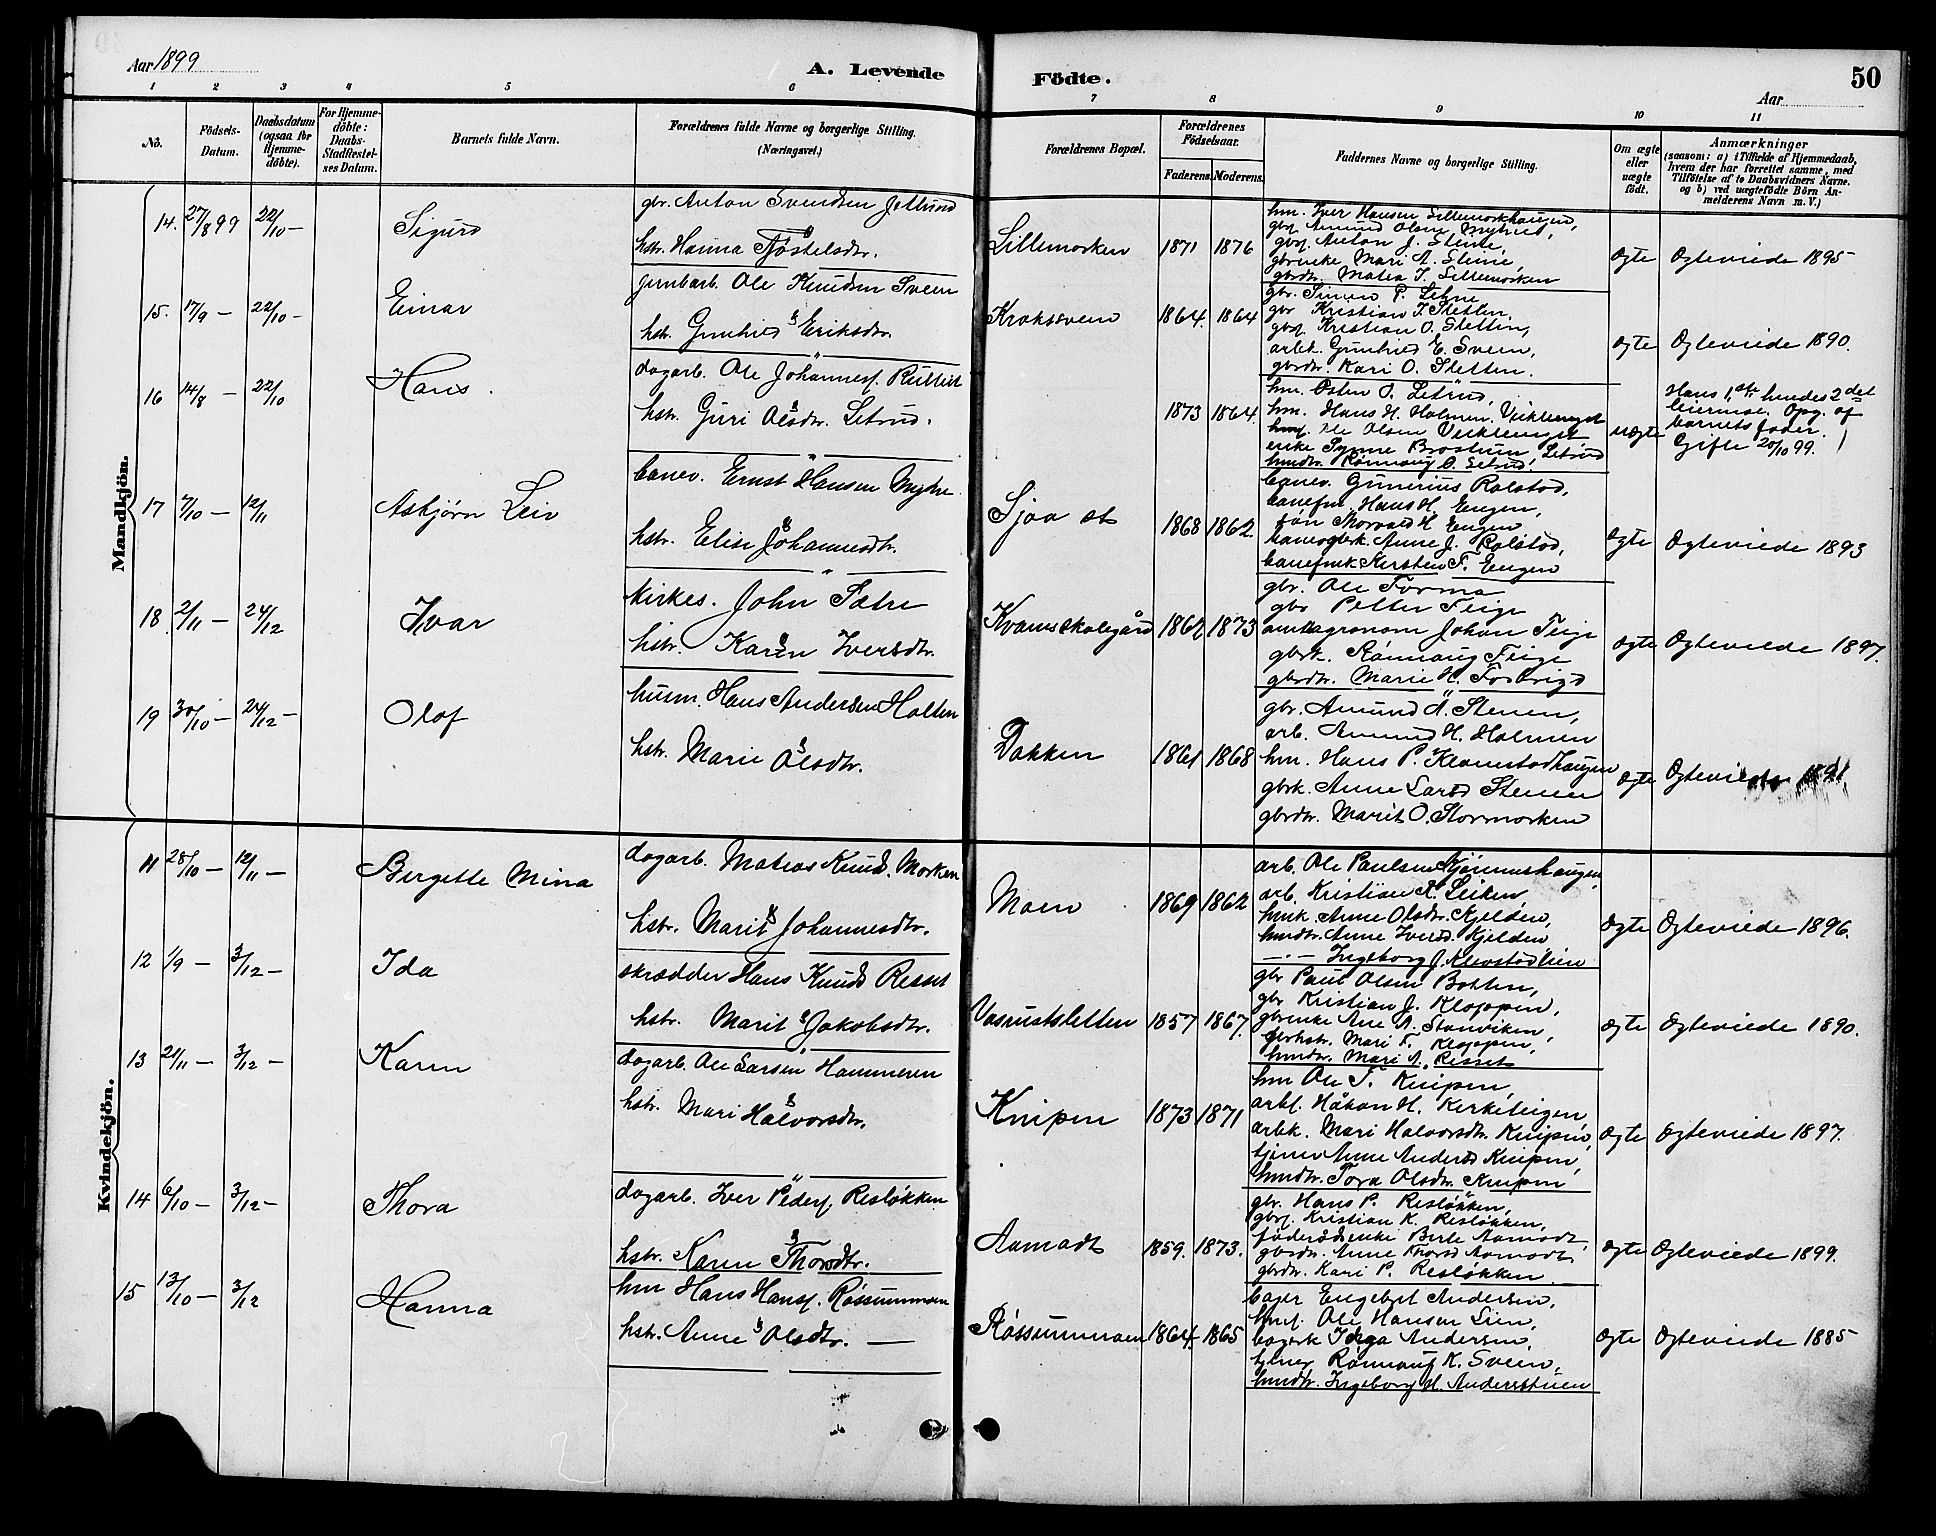 Aar 1899
A. Levende Födte.
50
Aar
1 2 3 4 5 6 7 8 9 10 11
No.
Födsels-Datum.
Daabsdatum (ogsaa for Hjemme-döbte).
For Hjemme-döbte: Daabs-Stadfestel-ses Datum.
Barnets fulde Navn.
Forældrenes fulde Navne og borgerlige Stilling. (Næringsvei.)
Forældrenes Bopæl.
Forældrenes Födselsaar.
Faderens. Moderens.
Faddernes Navne og borgerlige Stilling.
Om ægte eller uægte födt.
Anmærkninger
(saasom: a) i Tilfælde af Hjemmedaab, hvem der har forrettet samme, med Tilföielse af to Daabsvidners Navne, og b) ved uægtefödte Börn An-melderens Navn m. V.)
Mandkjön.
14. 27/8 99 22/10 — Sigurd
gbr. Anton Svendsen Jetlund
hstr. Hanna Tjøstelsdtr.
Lillemorken 1871 1876
hm. Iver Hansen Lillemorkhaugen,
gbrs. Amund Olsen Myhre,
gbrs. Anton J. Stene,
gbrenke Mari A. Stene
gbrdtr. Matea I. Lillemorken
ægte Ægteviede 1895
15. 17/9 — 22/10 — Einar
jernbarb. Ole Knudsen Sveen
hstr. Gunhild Eriksdtr.
Kroksveen 1864. 1864
gbr. Simen P. Lehne
gbr Kristian I. Sletten,
gbrs. Kristian O. Sletten,
arbk. Gunhild E. Sveen,
gbrdtr. Kari O. Sletten.
ægte Ægteviede 1890.
16 14/8 — 22/10 Hans.
dagarb. Ole Johannes.
hstr. Guri Olsdtr. Letrud.
1873 1864.
hm. Østen O. Letrud,
hm. Hans H. Holmen. Viklenget
Ole Olsen Viklenget
enke Synne Brostuen, Letrud
hmdtr. Rønnaug O. Letrud,
uægte
Hans 1ste hendes 2det
leiermaal. Opg. af
barnets fader.
Gifte 20/10 99.
17 7/10 — 12/11 Asbjørn Leiv
banev. Ernst Hansen Myhre
hstr. Elise Johannesdtr.
Sjoa st 1868 1862.
banev. Gunerius Rolstad,
banefm. Hans H. Engen,
søn Thorvald H Engen
banevogterk. Anne J. Rolstad,
banefmk Kirsten F. Engen
ægte Ægteviede 1893
18 2/11 — 24/12 Ivar
kirkes. John Sætre
hstr. Karen Iversdtr.
Kvamsskolegård 1862 1873
gbr. Ole Forma
gbr Petter Teige
amtsagronom Johan Teige
gbrk. Rønnaug Teige
gbrdtr. Marie H. Fosbrigd
ægte Ægteviede 1897.
19 30/10 — 24/12 — Olaf
husm. Hans Andersen Holten
hstr. Marie Olsdtr.
Dokken 1861 1868
gbr. Amund A. Stenen,
arb. Amund H. Holmen
hm. Hans P. Klomstadhaugen
gbrk. Anne Larsd Stenen
gbrdtr. Marit O. Stormorken
ægte Ægteviede 1891
Kvindekjön.
11 28/10 — 12/11 — Bergette Mina
dagarb. Mathias Knuds. Morken
hstr. Marit Johannesdtr.
Moen 1869 1862
arb. Ole Paulsen Kjønneshaugen,
arb. Kristian K. Leiken,
hmk. Anne Olsdtr. Kjelden,
hmdtr. Anne Iversd. Kjelden
— · — Ingeborg J. Klevstadlien
ægte Ægteviede 1896.
12 1/9 — 3/12 — Ida
skrædder Hans Knuds Resset
hstr. Marit Jakobsdtr.
Vasrustsletten 1857 1867.
gbr Paul Olsen Botten,
gbr Kristian J. Kloppen,
gbrenke Ane A. Stanviken,
Mari F. Kloppen,
hmdtr. Mari A. Resset
ægte Ægteviede 1890.
13 21/11 — 3/12 — Karen
dagarb. Ole Larsen Hammeren
hstr. Mari Halvorsdtr.
Knipen 1873 1871
hm Ole T. Knipen,
arbs. Håkon H. Kirketeigen,
arbk. Mari Halvorsdtr. Knipen,
tjener Anne Andersd Knipen,
hmdtr. Tora Olsdtr. Knipen
ægte Ægteviede 1897.
14 6/10 — 3/12 — Thora
dagarb. Iver Peders. Resløkken
hstr. Karen Thorsdtr.
Aamodt 1859. 1873.
gbr. Hans P. Resløkken,
gbrs. Kristian K. Resløkken,
føderådsenke Berte Aamodt,
gbrdtr. Anne Thorsd Aamodt,
gbrdtr. Kari P. Resløkken
ægte Ægteviede 1899.
15 13/10 — 3/12 Hanna
hm Hans Hans. Røssummoen
hstr. Anne Olsdtr. —
Røssummoen 1864. 1865
bager Engebret Andersen,
hms. Ole Hansen Lien,
bagerk Inga Andersen,
tjener Rønnaug K. Sveen,
hmdtr. Ingeborg H. Andersstuen
ægte Ægteviede 1885